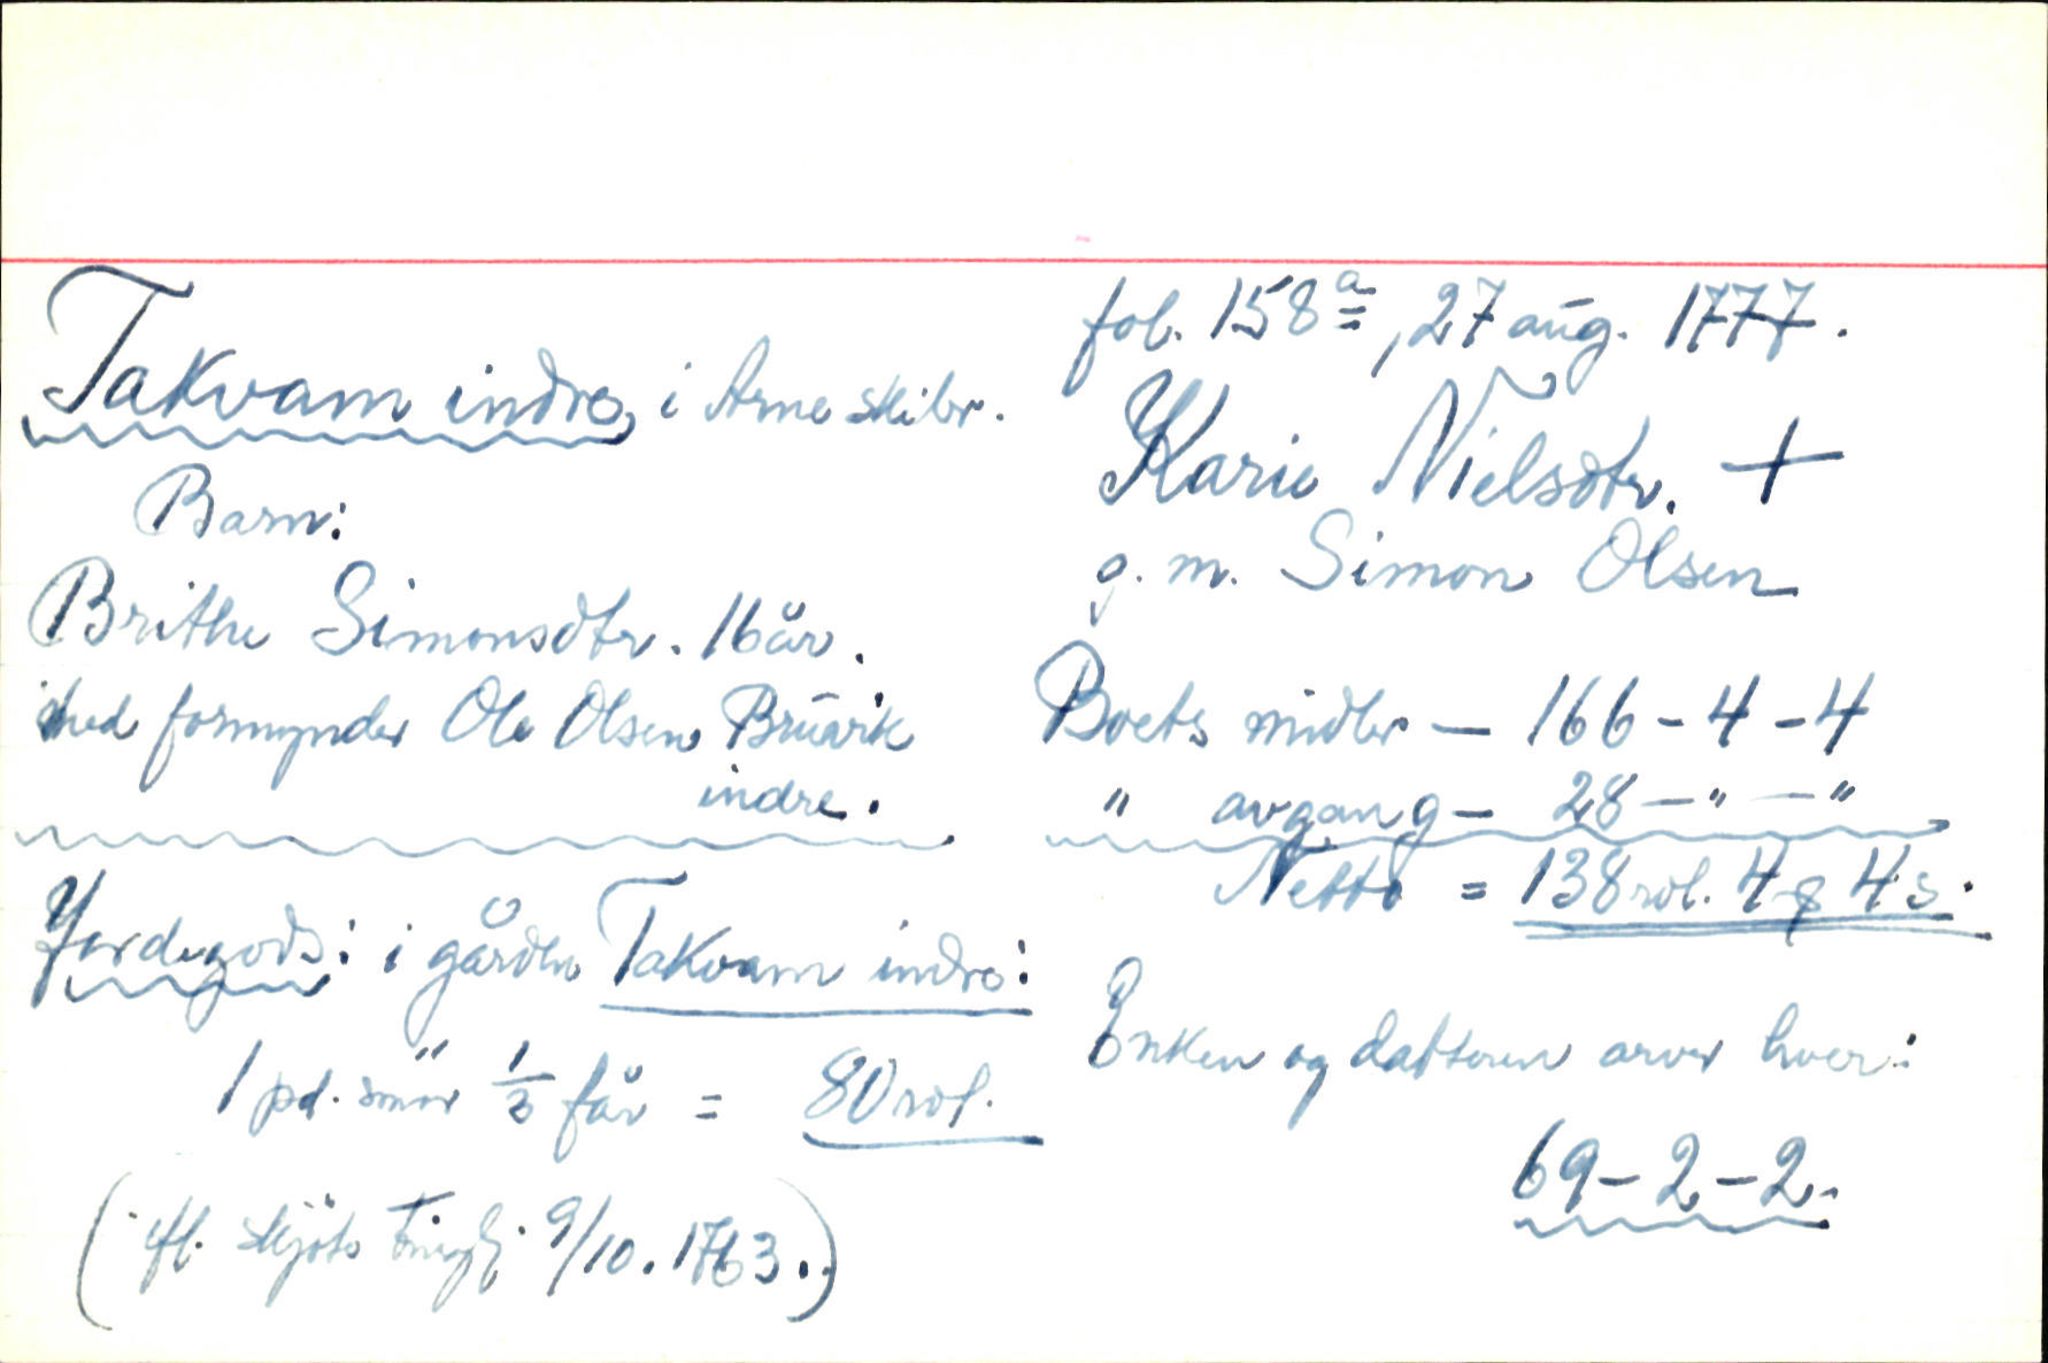 Takvam indre, i Arne skibr.
Barn:
Brithe Simonsdtr. 16 år.
med formynder Ole Olsen Bruvik
indre.
Jordegods: i gården Takvam indre:
1 pd. smör 1/3 får = 80 rdl.
(ifl. skjöte tinglj. 9/10. 1763.)
fol. 158a, 27 aug. 1777.
Karie Nielsdtr. +
g. m. Simon Olsen
Boets midler — 166 - 4 - 4
" avgang — 28 — " — "
Netto = 138 rdl. 4 ꝑ 4 s.
Enken og datteren arver hver:
69 - 2 - 2.